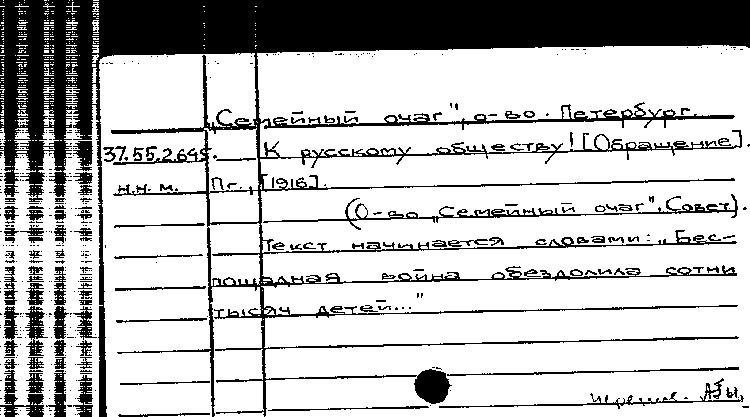 „Семейный очаг", о-во. Петербург.
37.55.2.645. К русскому обществу! [Обращение].
н.н. м. Пг., [1916].
(О-во „Семейный очаг". Совет).
Текст начинается словами: „Бес-
пощадная война обездолила сотни
тысяч детей..."